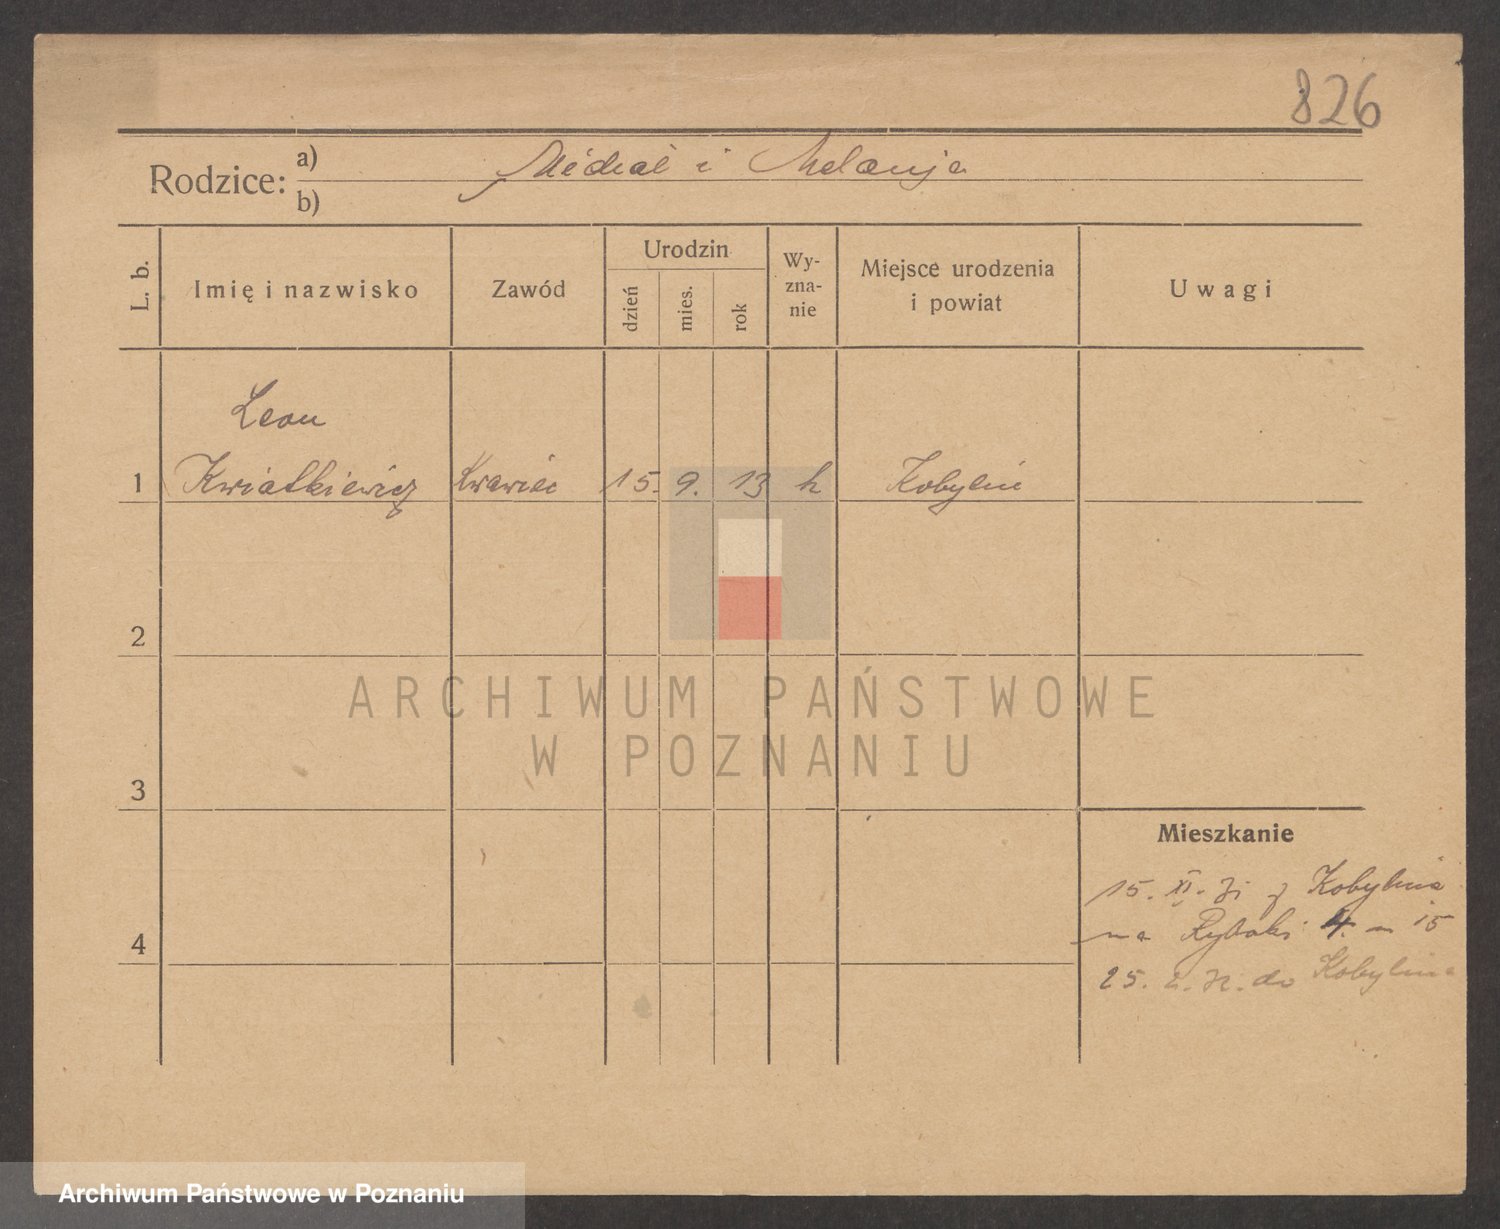 826
Rodzice: a) Michał i Melanja
b)
L. b.
Imię i nazwisko
Zawód
Urodzin
dzień
mies.
rok
Wy-
zna-
nie
Miejsce urodzenia
i powiat
Uwagi
Leon
1 Kwiatkiewicz Krawiec 15. 9. 13 k Kobylin
2
3
4
Mieszkanie
15. XI. 31 z Kobylina
na Rybaki 4. m 15
25. 2. 32. do Kobylina
ARCHIWUM PAŃSTWOWE
W POZNANIU
Archiwum Państwowe w Poznaniu